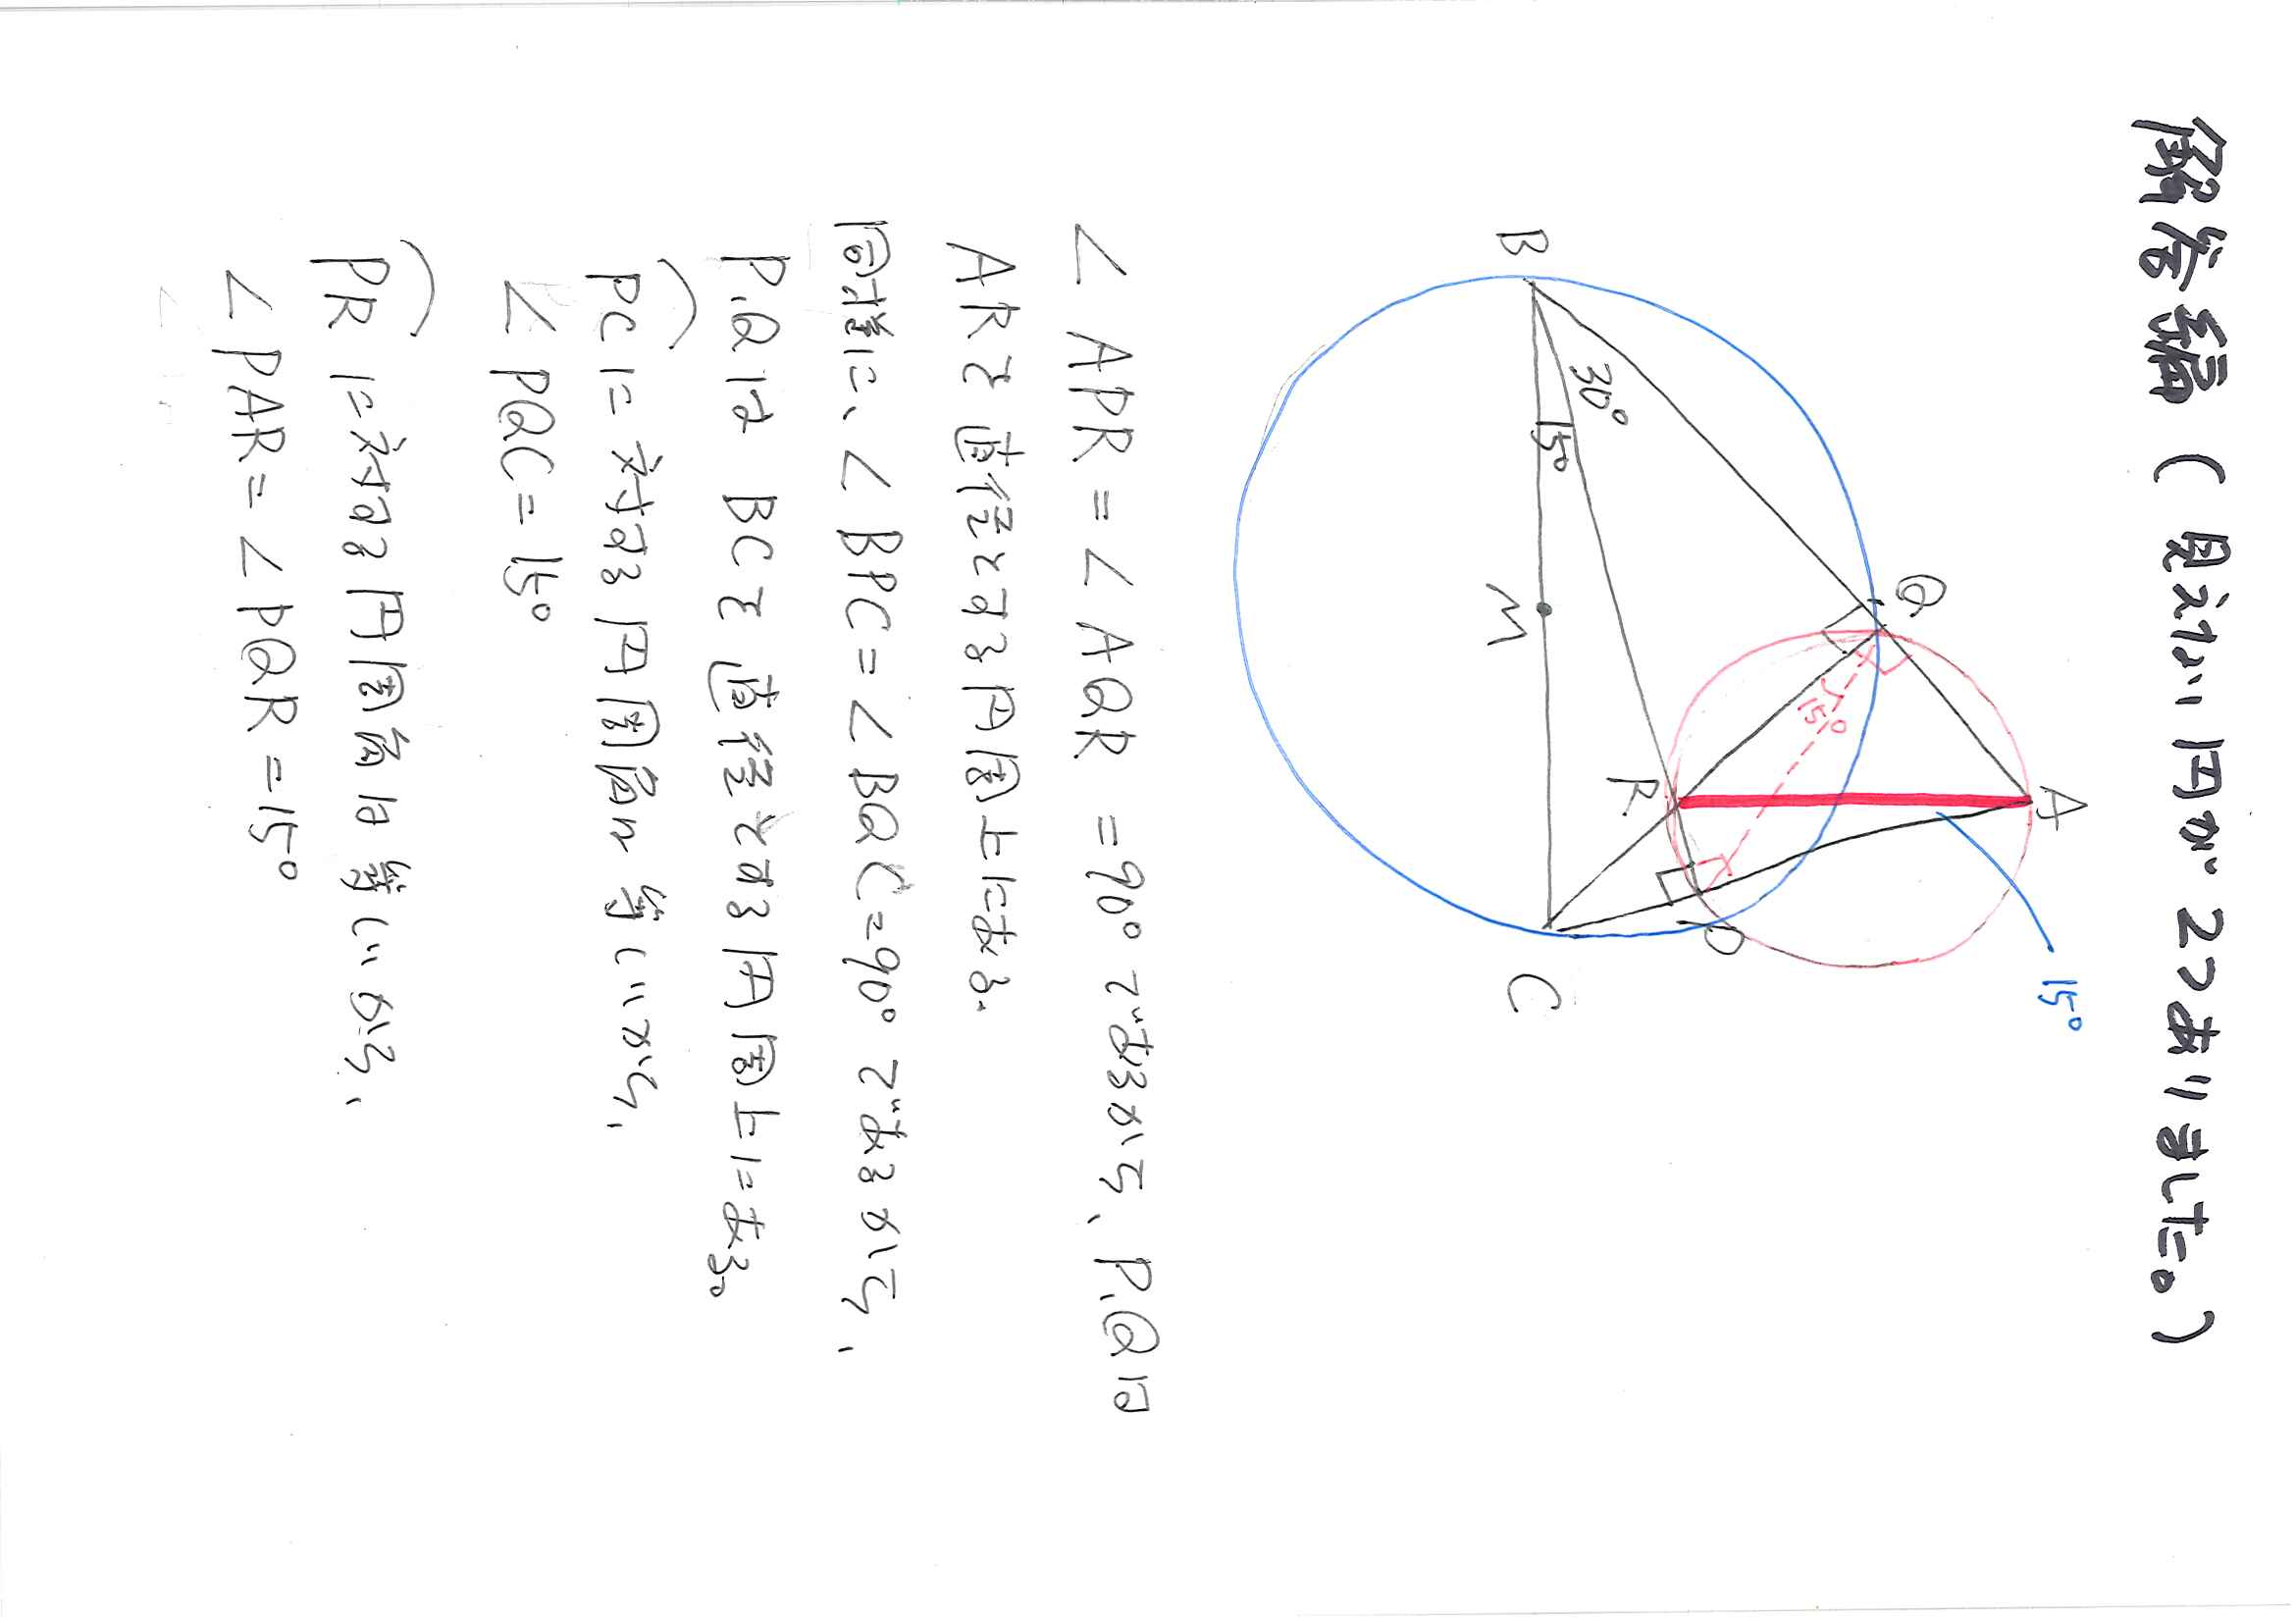 解答編(見えない円が2つありました。)
A
15°
Q
30°
15°
15°
R
P
B
M
C
∠APR=∠AQR=90°であるから、P,Qは
ARを直径とする円周上にある。
同様に、∠BPC=∠BQC=90°であるから、
P,QはBCを直径とする円周上にある。
PCに対する円周角は等しいから、
∠PQC=15°
PRに対する円周角は等しいから、
∠PAR=∠PQR=15°